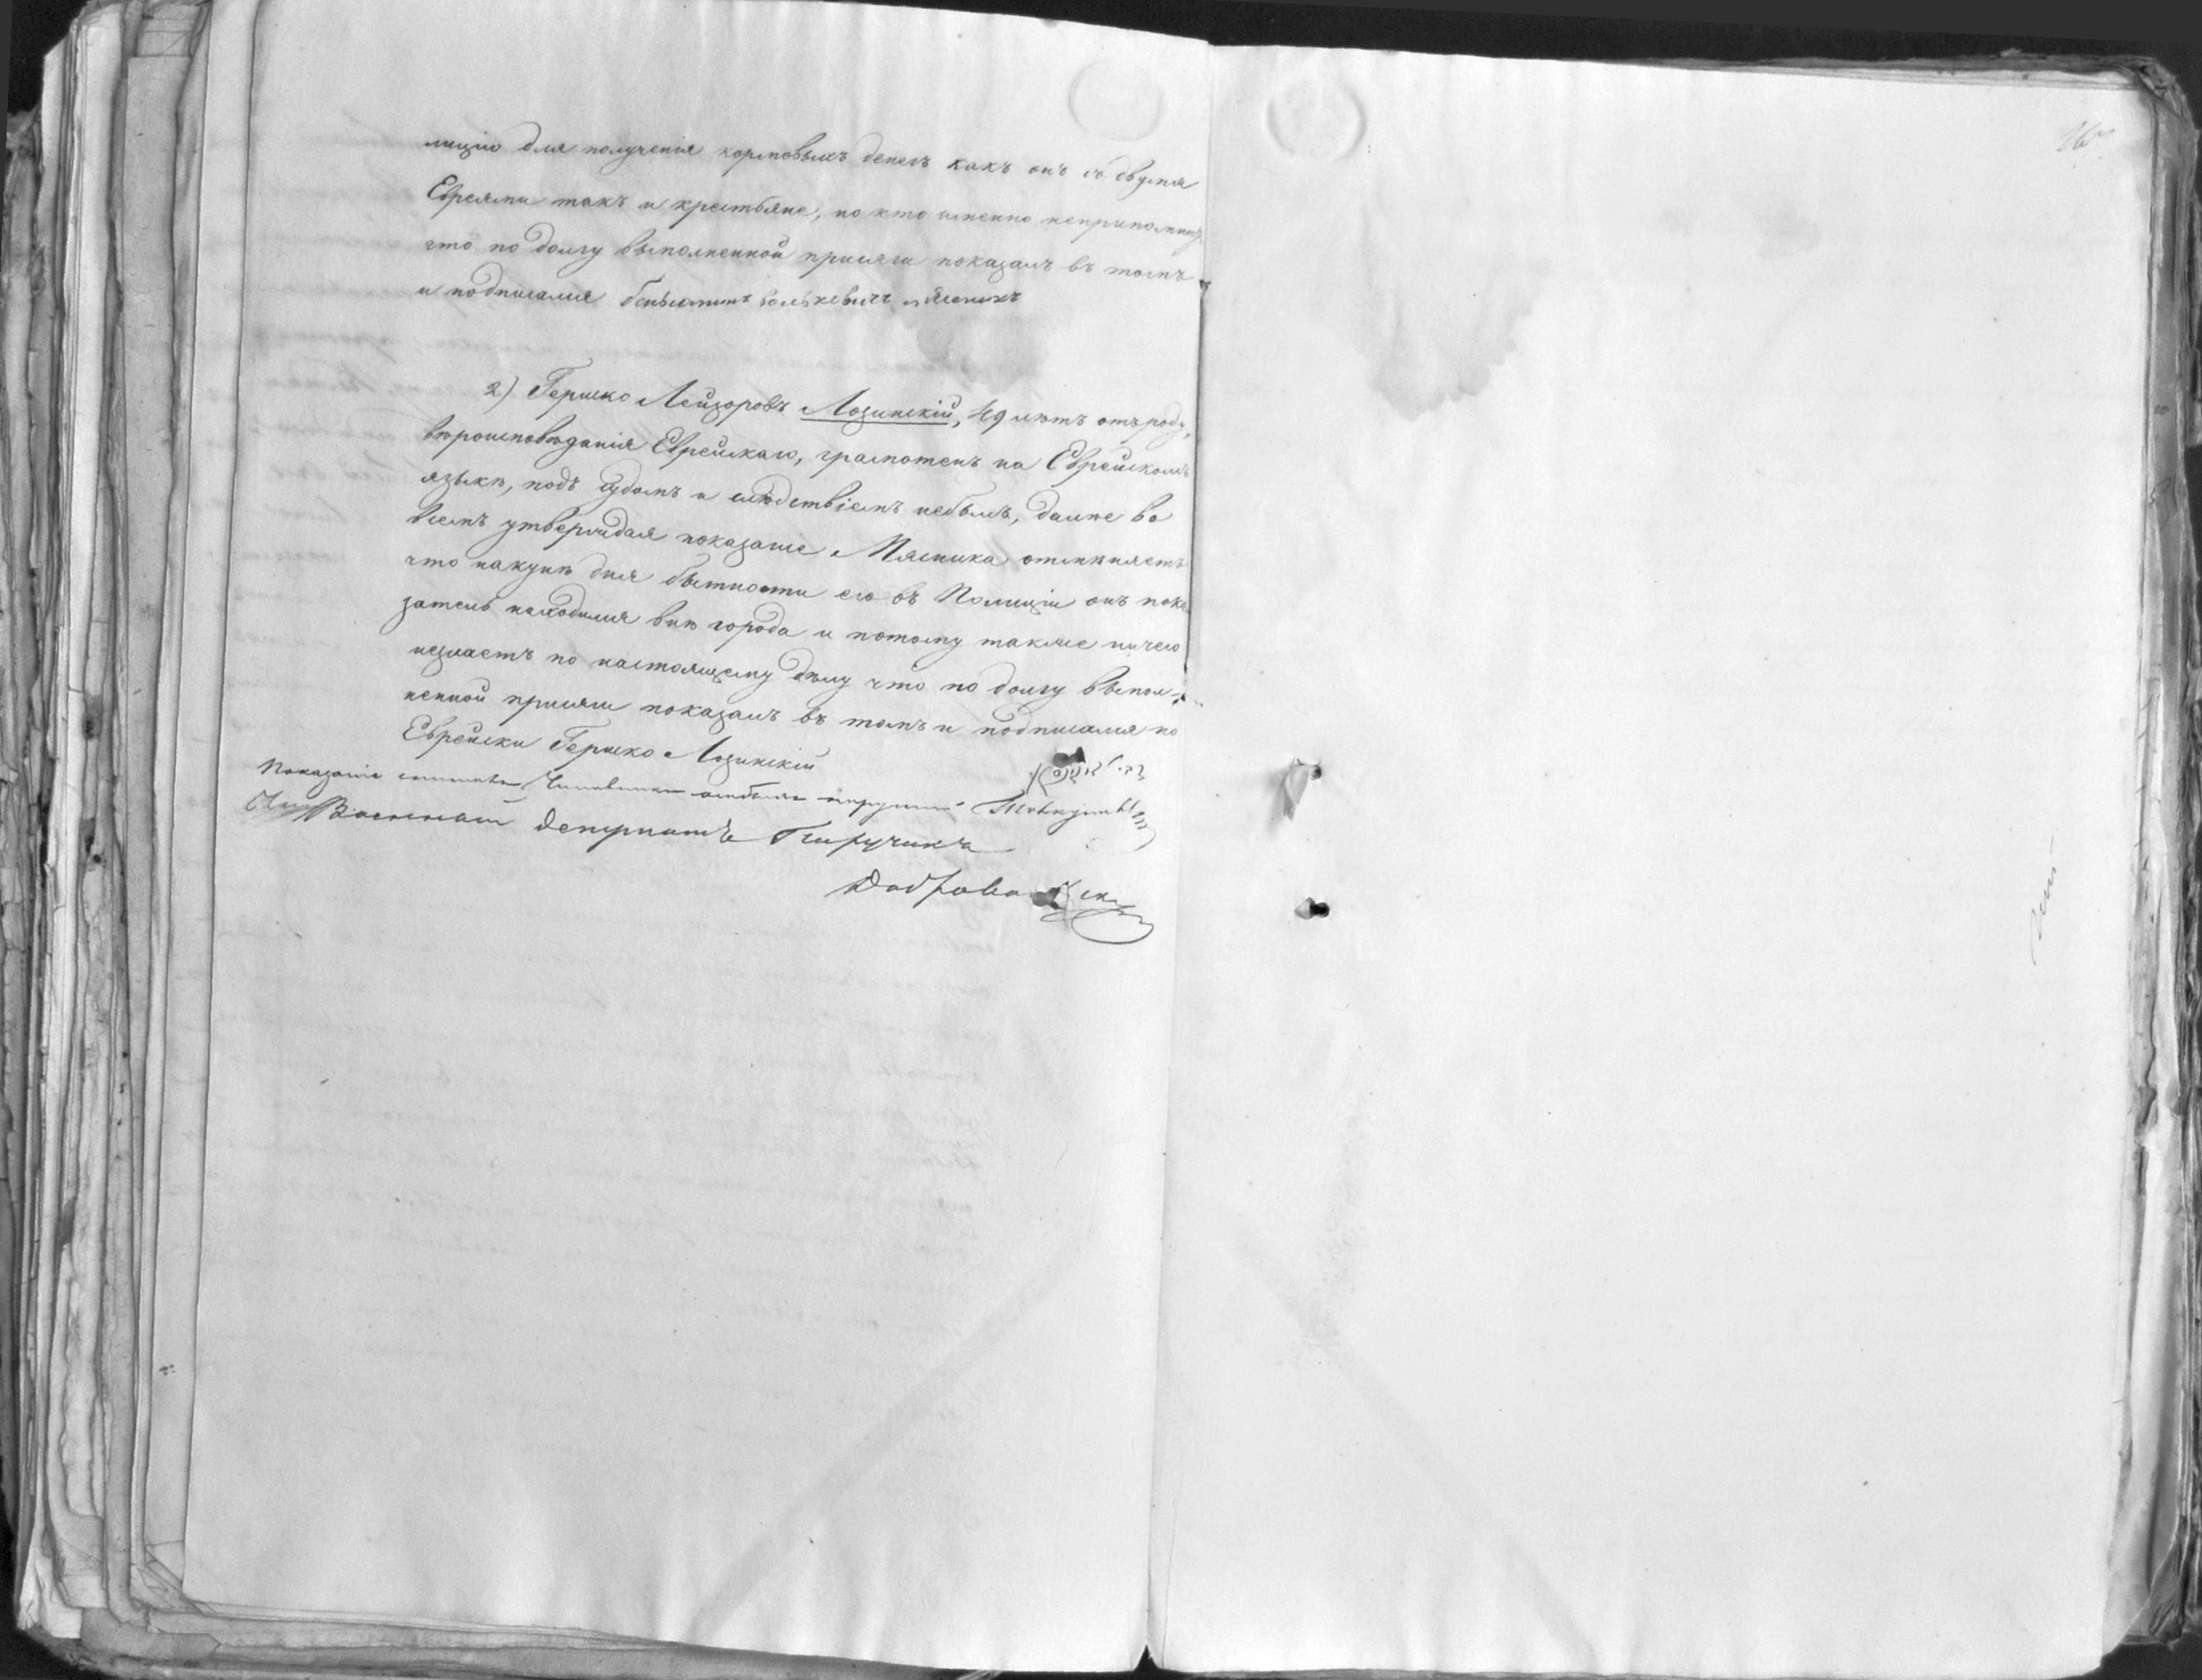 лицію для полученія кормовыхъ денегъ какъ онъ съ двумя
Евреями такъ и крестьяне, но кто именно неприпомнитъ
что по долгу выполненной присяги показалъ въ томъ
и подписался Беньяминъ Волькевичъ Мясникъ
2) Гершко Лейзоровъ Лозинскій, 49 лѣтъ отъ роду,
вѣроисповѣданія Еврейскаго, грамотенъ на Еврейскомъ
языкѣ, подъ судомъ и слѣдствіемъ небылъ, далѣе во
всемъ утверждая показаніе Мясника отмѣняетъ
что наканунѣ дня бытности его въ Полиціи онъ пока
затель находился внѣ города и потому также ничего
незнаетъ по настоящему дѣлу что по долгу выпол-
ненной присяги показалъ въ томъ и подписался по
Еврейски Гершко Лозинскій
Показаніе Чиновникъ особыхъ порученій
Военный депутатъ Поручикъ
Добровольскій